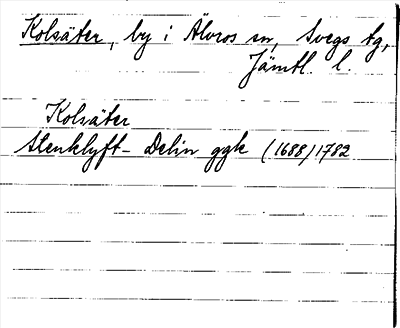 Kolsäter, by i Älvros sn, Svegs tg,
Jämtl. l.
Kolsäter
Stenklyft - Delin ggk (1688) 1782